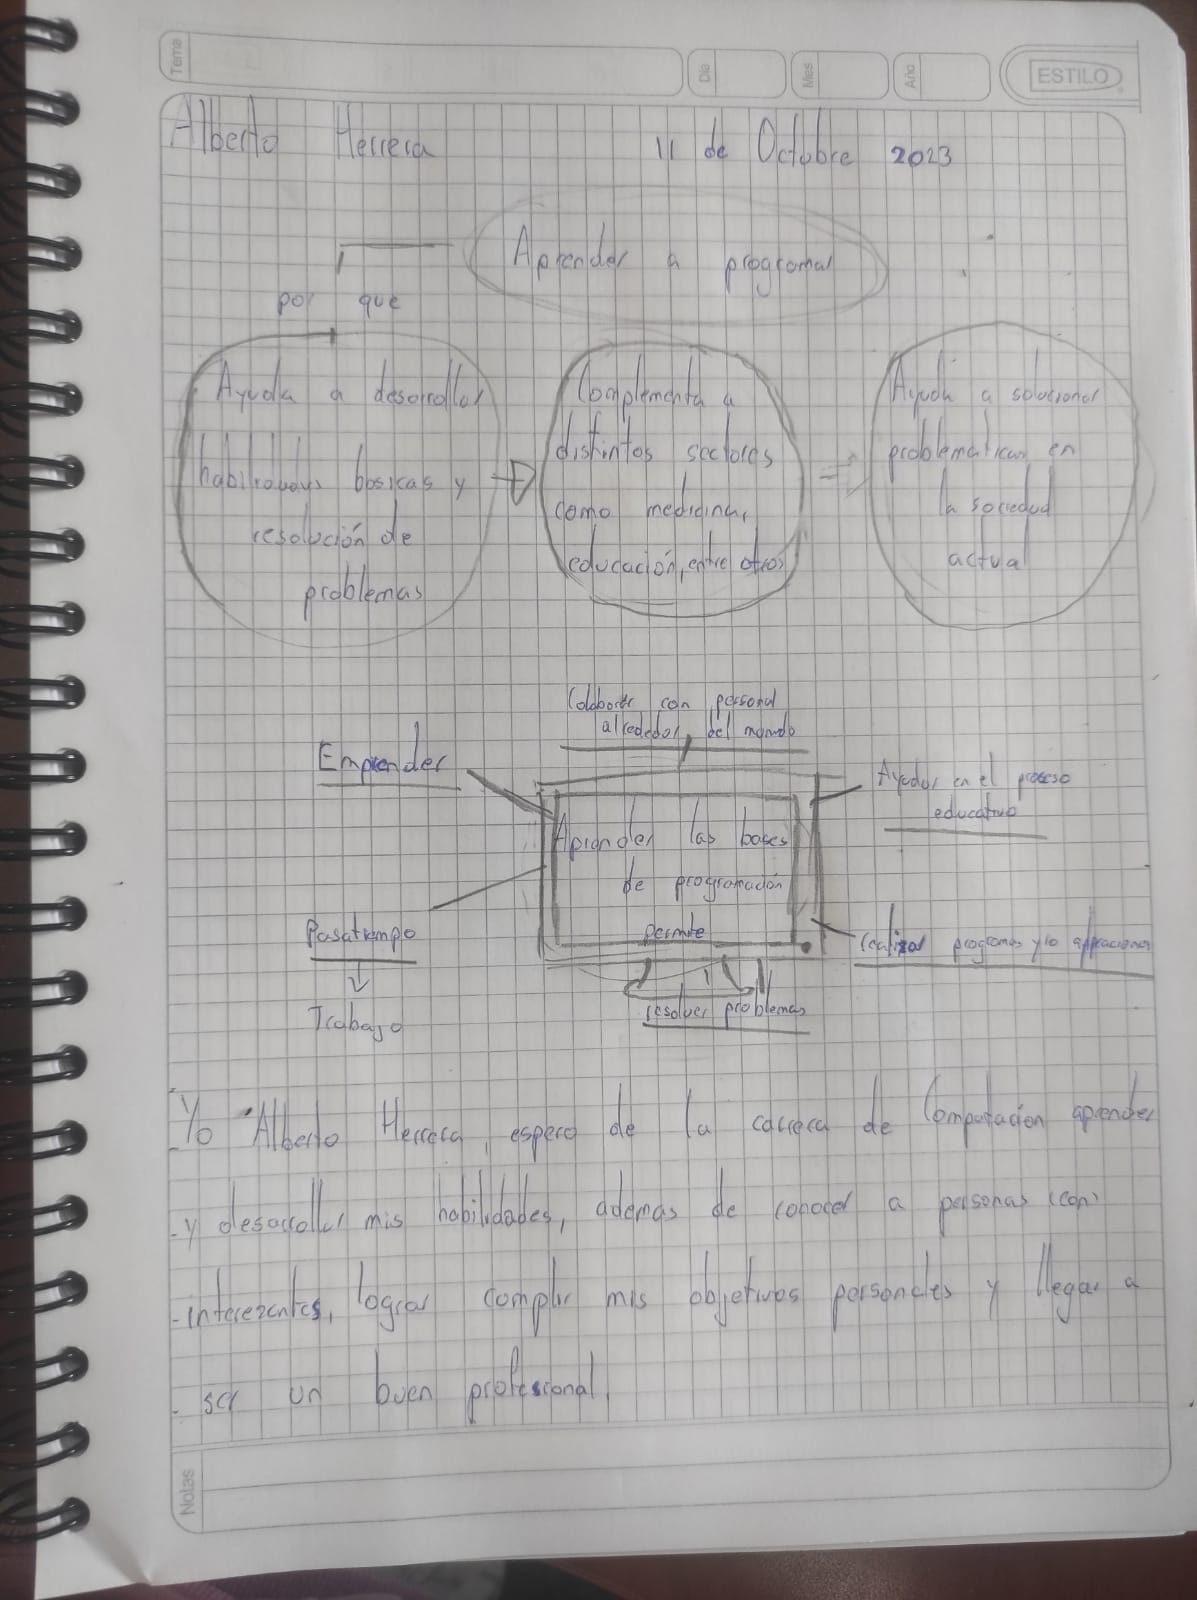 Tema
Dia
Mes
Año
ESTILO
Alberto Herrera 11 de Octubre 2023
Aprender a programar
por que
Ayuda a desarrollar
habilidades basicas y
resolución de
problemas
Complementa a
distintos sectores
como medicina,
educación, entre otros
Ayuda a solucionar
problematicas en
la sociedad
actual
Colaborar con personal
alrededor del mundo
Emprender
Ayudar en el proceso
educativo
Aprender las bases
de programación
permite
Pasatiempo
Trabajo
realizar programas y/o aplicaciones
resolver problemas
Yo Alberto Herrera, espero de la carrera de Computación aprender
y desarrollar mis habilidades, ademas de conocer a personas (con)
interezantes, lograr complir mis objetivos personales y llegar a
ser un buen profesional.
Notas